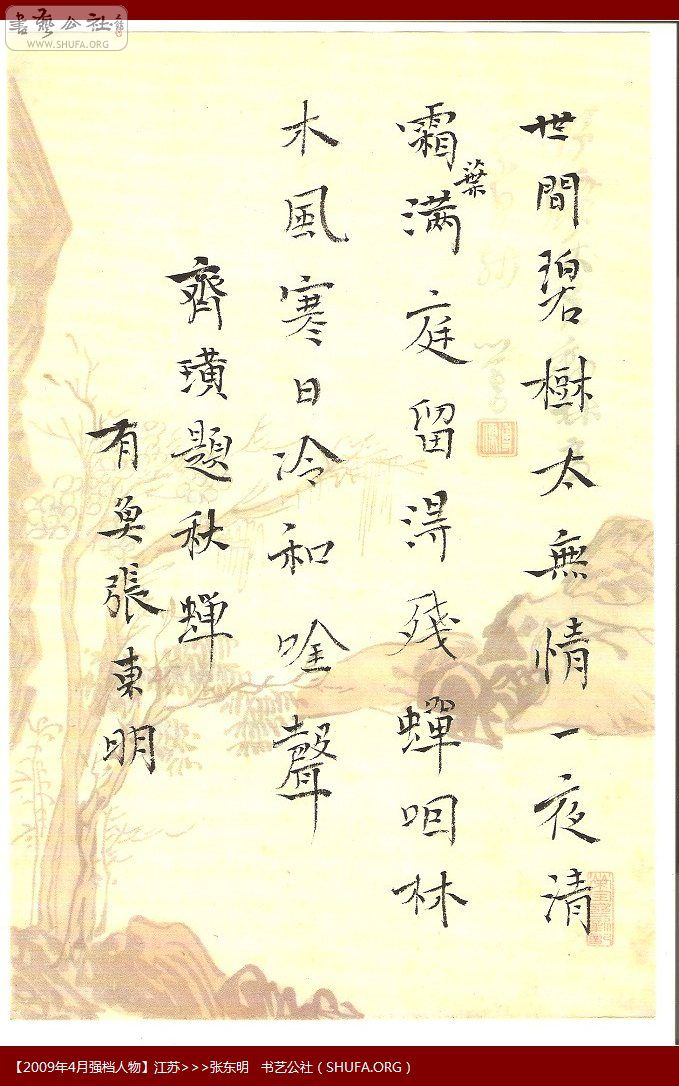 书艺公社
WWW.SHUFA.ORG
世間碧樹太無情一夜清
霜葉满庭留淂殘蟬咽林
木風寒日冷和唫聲
齊璜題秋蟬
有奐張東明
【2009年4月强档人物】江苏>>>张东明 书艺公社（SHUFA.ORG）